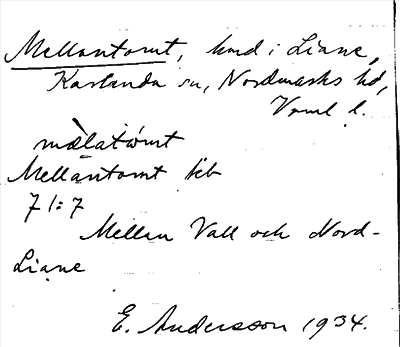 Mellantomt, hmd i Liane,
Karlanda sn, Nordmarks hd,
Vrml l.
mälatåmt
Mellantomt kb
71:7
Mellan Vall och Nord-
Liane
E. Andersson 1934.